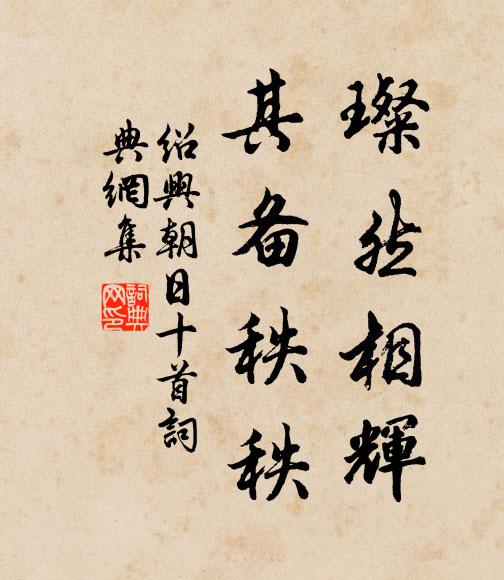 璨然相輝
其备秩秩
紹興朝日十首詞
典網集
詞典
网印